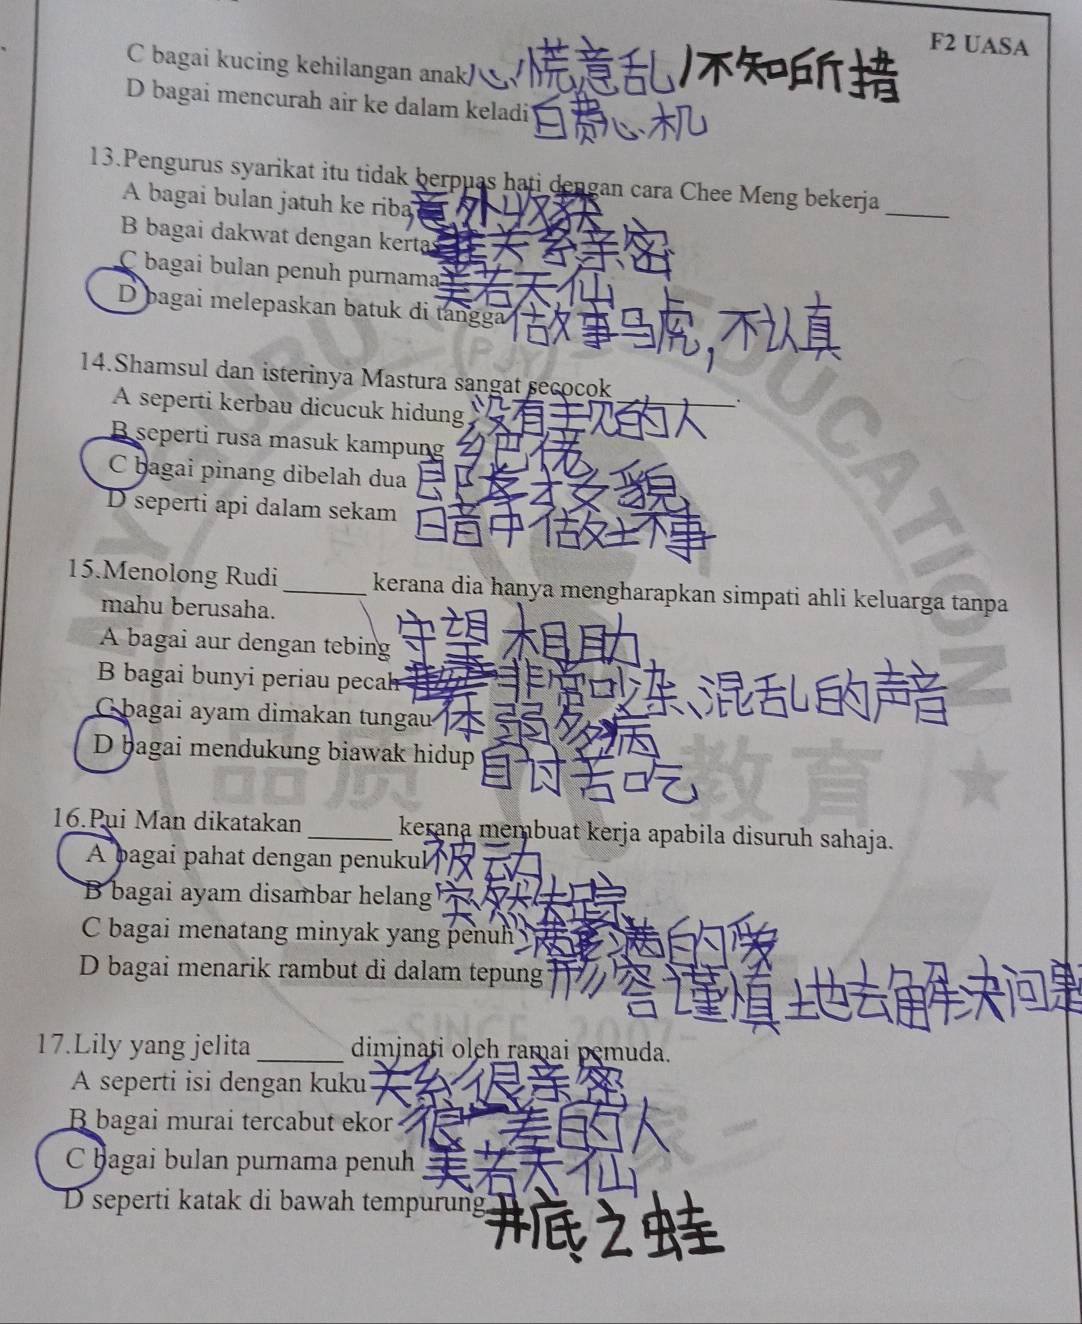 F2 UASA
C bagai kucing kehilangan anak 心慌意乱/不知所措
D bagai mencurah air ke dalam keladi 白费心机
13.Pengurus syarikat itu tidak berpuas hati dengan cara Chee Meng bekerja ______
A bagai bulan jatuh ke riba 意外收获
B bagai dakwat dengan kertas 关系亲密
C bagai bulan penuh purnama 美若天仙
D bagai melepaskan batuk di tangga 做事马虎,不认真
14.Shamsul dan isterinya Mastura sangat secocok ______.
A seperti kerbau dicucuk hidung 没有主见的人
B seperti rusa masuk kampung 乡巴佬
C bagai pinang dibelah dua 郎才女貌
D seperti api dalam sekam 暗中做坏事
15.Menolong Rudi ______ kerana dia hanya mengharapkan simpati ahli keluarga tanpa
mahu berusaha.
A bagai aur dengan tebing 守望相助
B bagai bunyi periau pecah 非常吵杂、混乱的声音
C bagai ayam dimakan tungau 体弱多病
D bagai mendukung biawak hidup 自讨苦吃
16.Pui Man dikatakan ______ kerana membuat kerja apabila disuruh sahaja.
A bagai pahat dengan penukul 被动
B bagai ayam disambar helang 突然失踪
C bagai menatang minyak yang penuh 满满的爱
D bagai menarik rambut di dalam tepung 形容谨慎地去解决问题
17.Lily yang jelita ______ diminati oleh ramai pemuda.
A seperti isi dengan kuku 关系很亲密
B bagai murai tercabut ekor 的人
C bagai bulan purnama penuh 美若天仙
D seperti katak di bawah tempurung 井底之蛙
EDUCATION
品质
教育
SINCE 2007